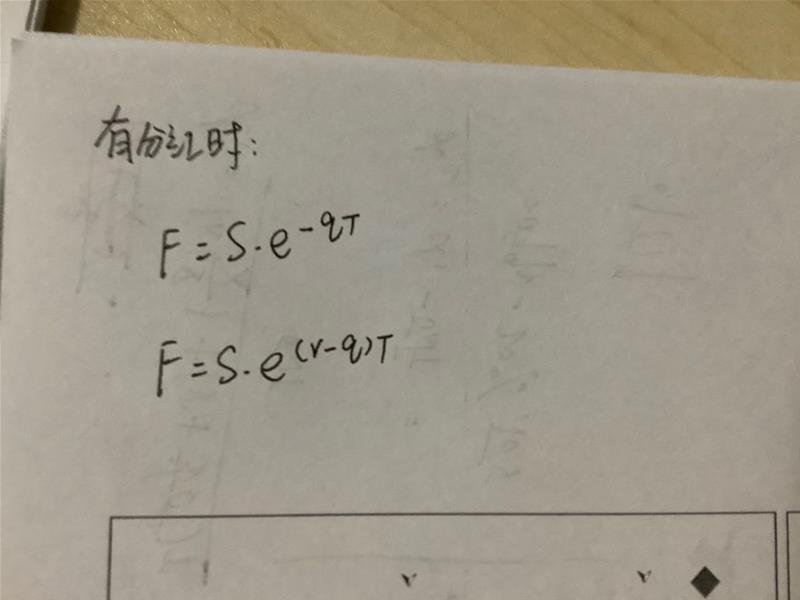 有分红时:
F = S·e^{-qT}
F = S·e^{(r-q)T}